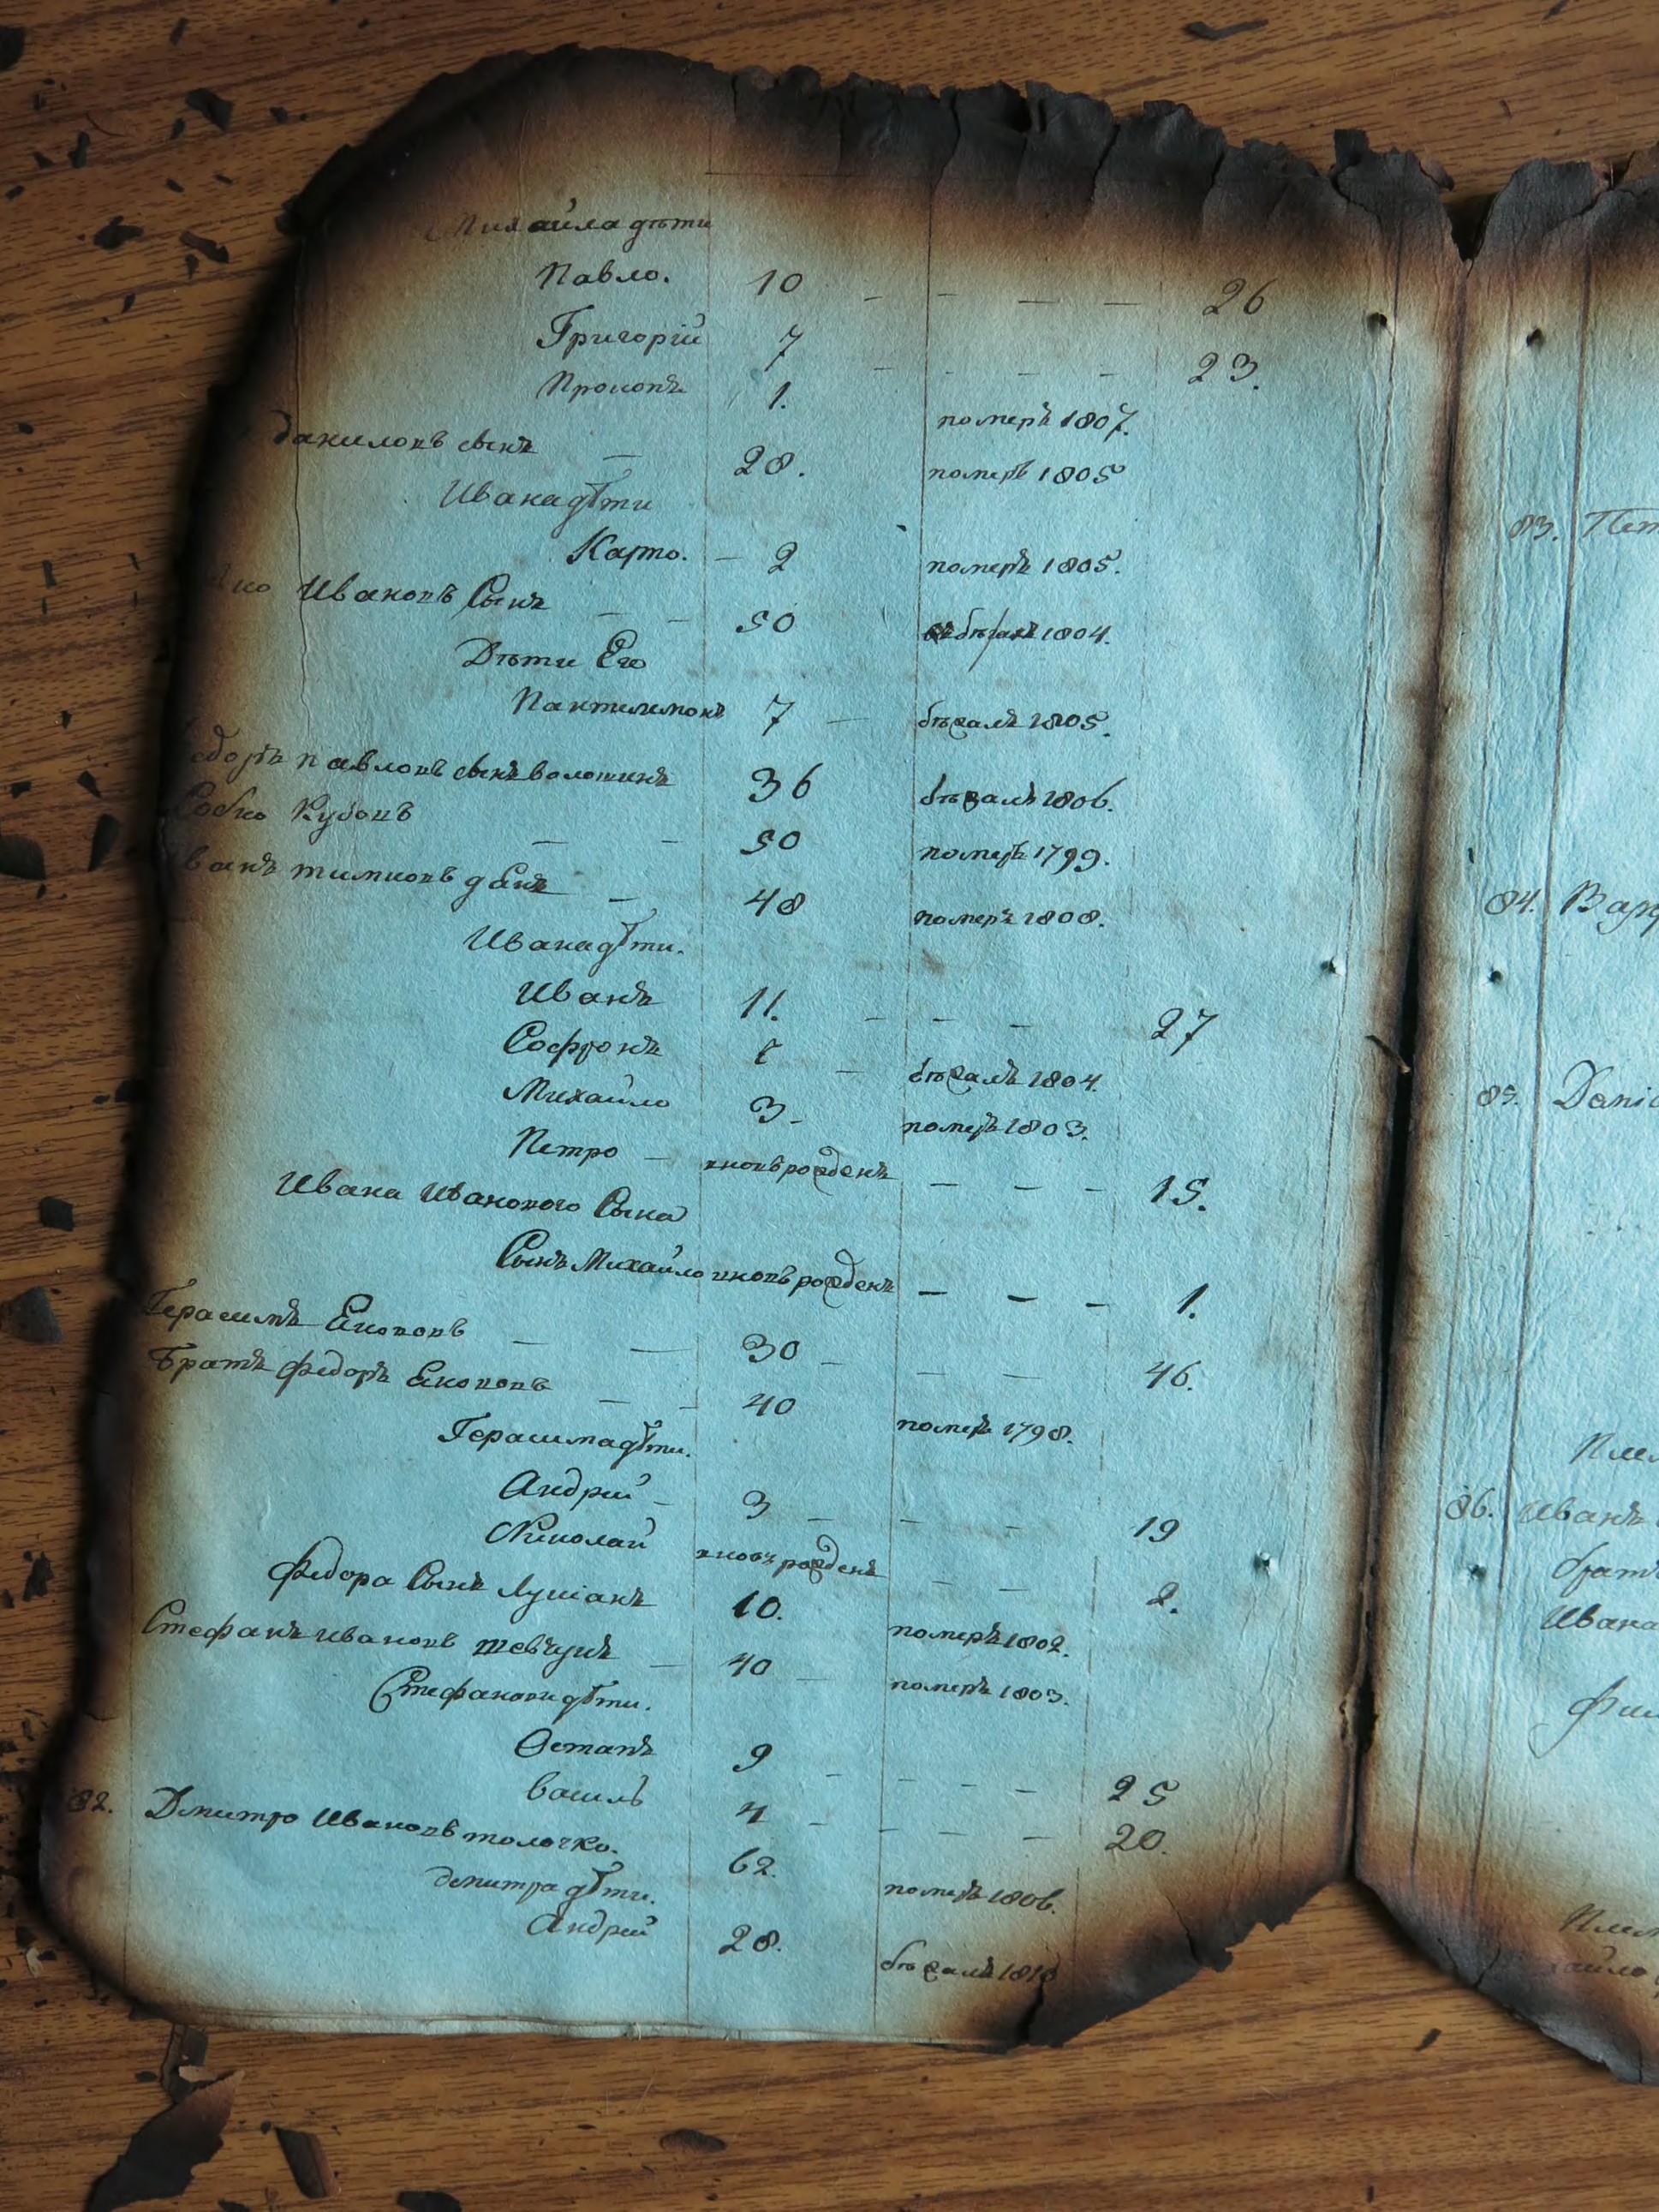 Михайла дѣти
Павло. 10 - - - - 26
Григорій 7 - - - - 23.
Прокопъ 1. померъ 1807.
Даниловъ сынъ - 28. померъ 1805
Ивана дѣти
Карпо. - 2 померъ 1805.
Ивановъ Сынъ - - 50 1804.
Дѣти Его
Пантилимонъ 7 - бѣжалъ 1805.
павловъ сынъ волошинъ 36 бѣжалъ 1806.
50 померъ 1799.
48 померъ 1808.
Ивана дѣти.
Иванъ 11. - - - 27
Софронъ - бѣжалъ 1804.
Михайло 3 - померъ 1803.
Петро - вновь рожденъ - - - 15.
Ивана Иванового Сына
Сынъ Михайло вновь рожденъ - - - 1.
Герасимъ Якововъ - - 30 - - - 46.
Братъ Федоръ Якововъ - - 40 померъ 1798.
Герасима дѣти.
Андрей - 3 - - - 19
Николай вновь рожденъ - - 2.
Федора Сынъ Лукіанъ 10. померъ 1802.
Стефанъ Ивановъ шевчукъ - 40 - померъ 1803.
Стефановы дѣти.
Остапъ 9 - - - - 25
василь 4 - - - - 20.
82. Дмитро Ивановъ толочко. 62. померъ 1806.
Дмитра дѣти.
Андрей 28. бѣжалъ 1810
83.
84.
85.
86. Иванъ
братъ
Ивана